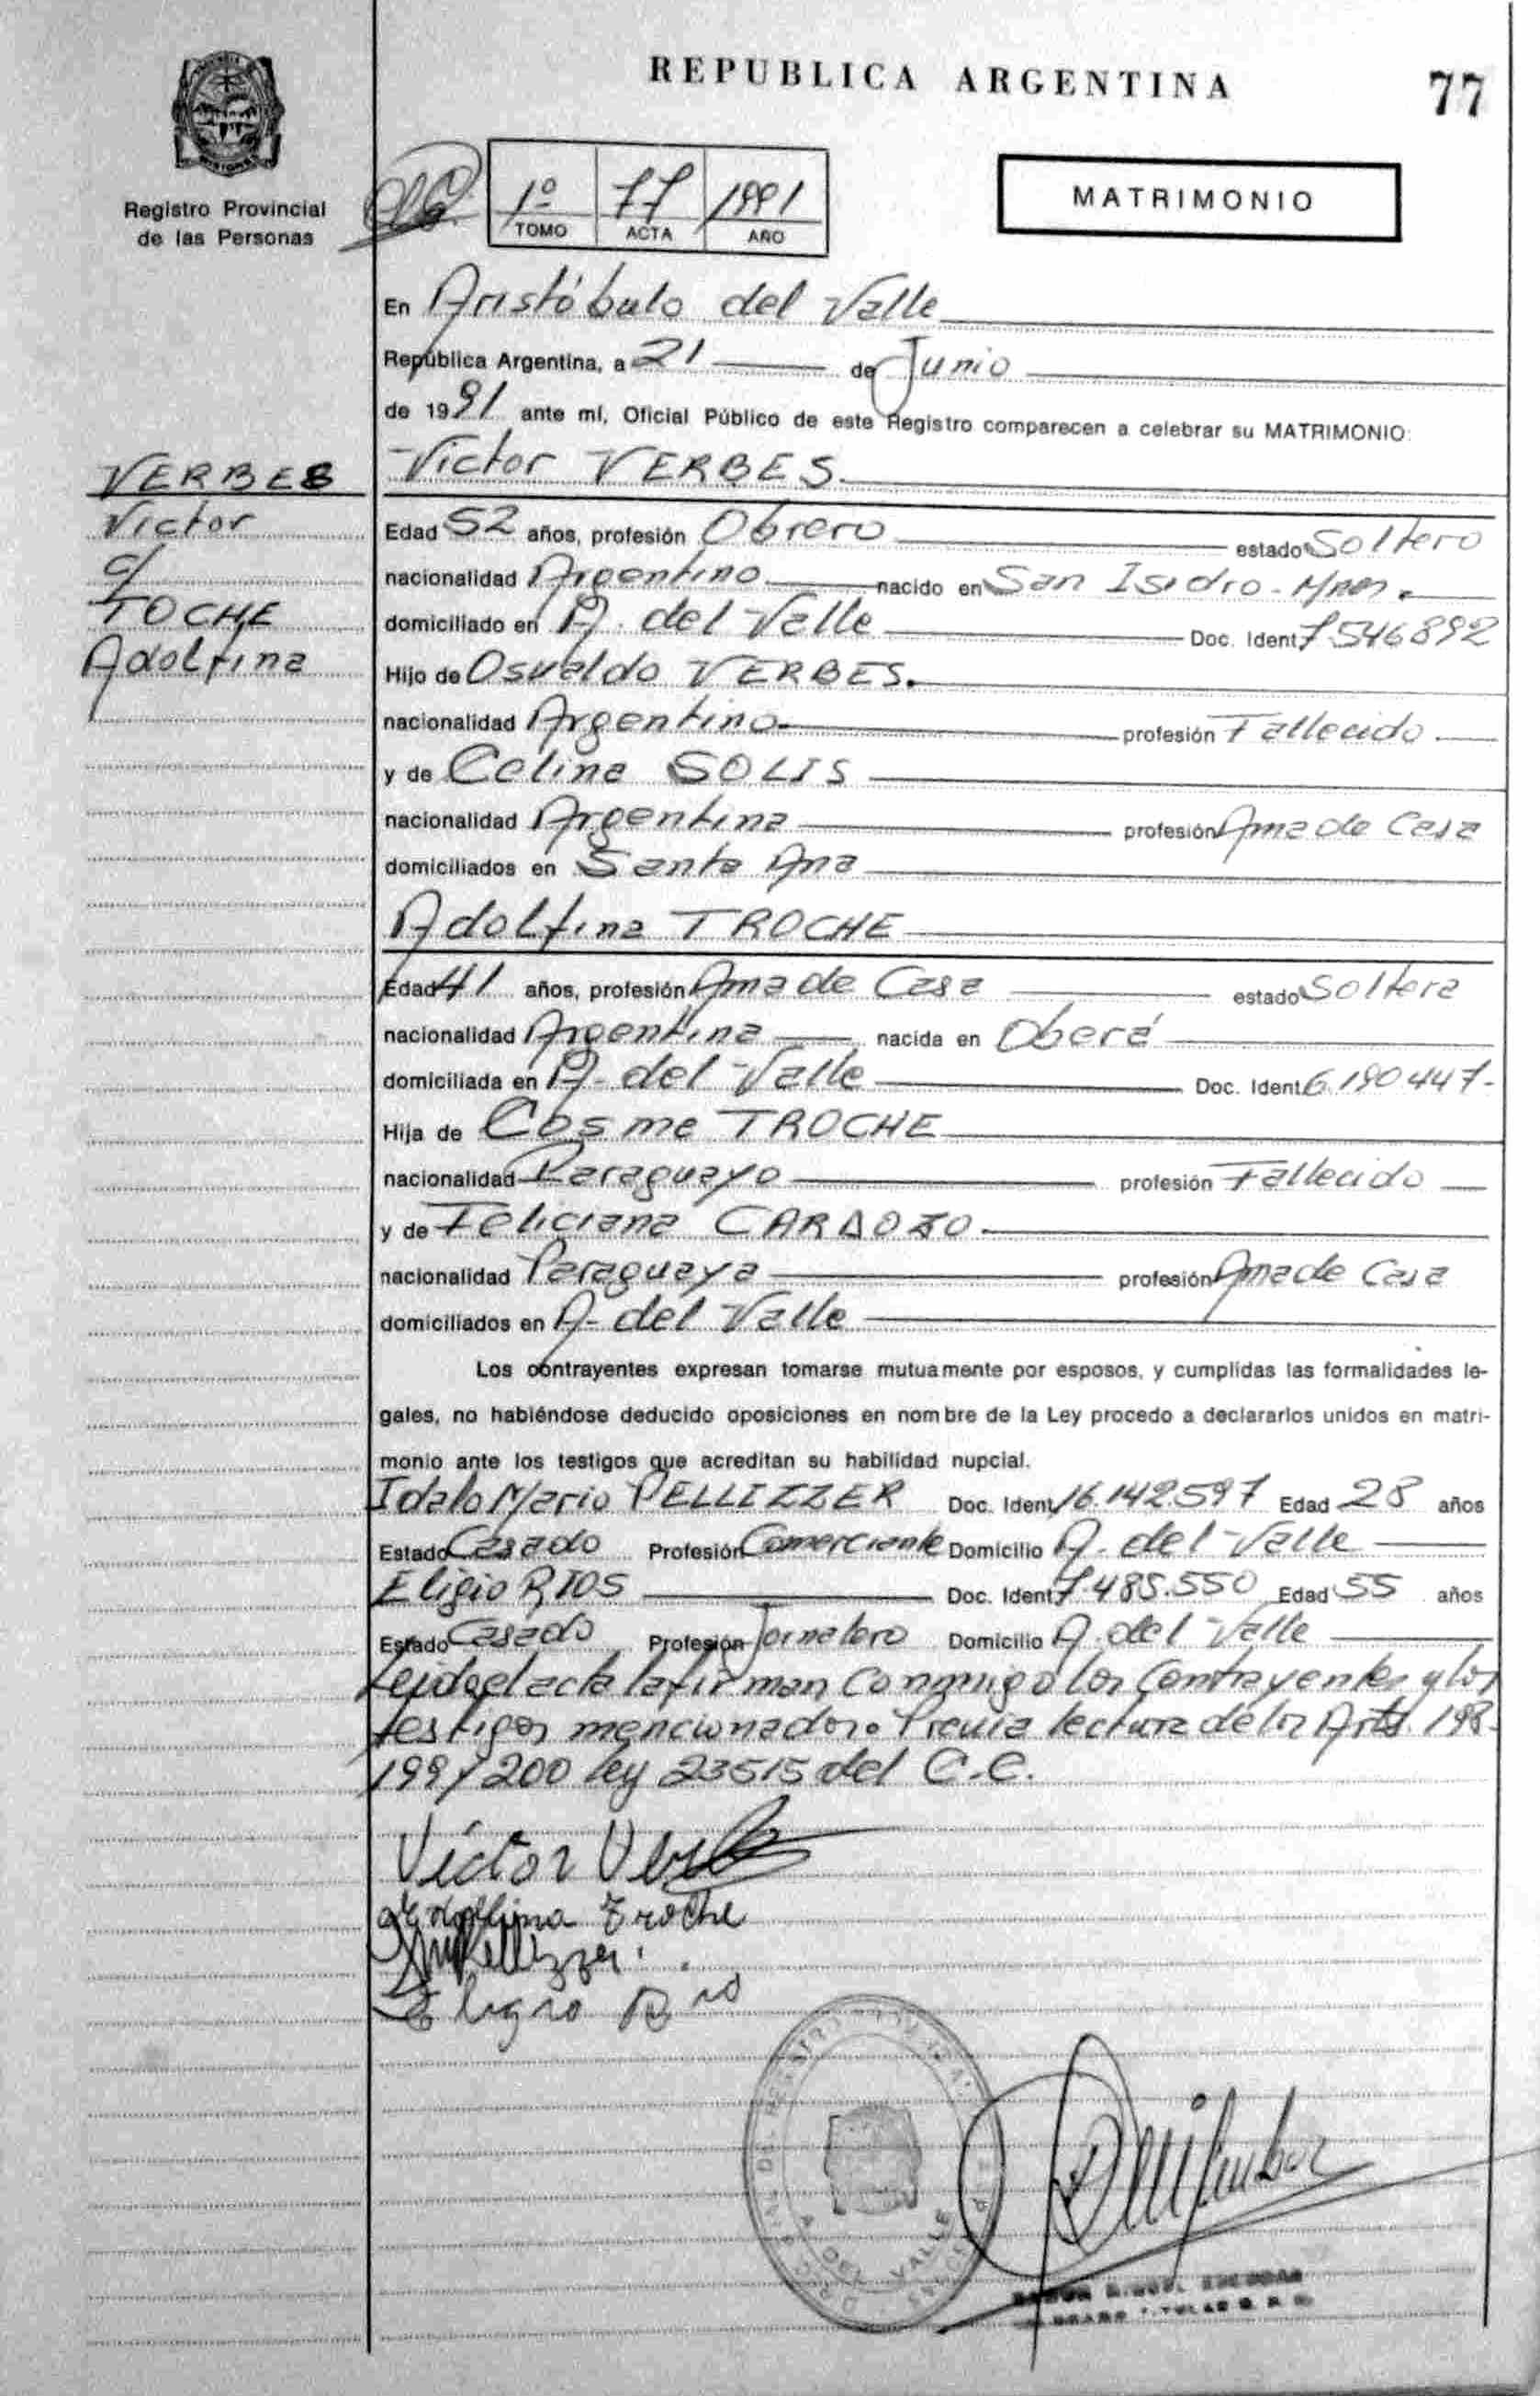 REPUBLICA ARGENTINA
77
Registro Provincial
de las Personas
1º 77 1991
TOMO ACTA AÑO
MATRIMONIO
En Aristóbulo del Valle
República Argentina, a 21 de Junio
de 1991 ante mí, Oficial Público de este Registro comparecen a celebrar su MATRIMONIO:
VERBES
Victor
c/
TOCHE
Adolfina
Victor VERBES
Edad 52 años, profesión Obrero estado Soltero
nacionalidad Argentino nacido en San Isidro - Mnes.
domiciliado en A. del Valle Doc. Ident 7546892
Hijo de Osvaldo VERBES.
nacionalidad Argentino profesión Fallecido
y de Celina SOLIS
nacionalidad Argentina profesión Ama de Casa
domiciliados en Santa Ana
Adolfina TROCHE
Edad 41 años, profesión Ama de Casa estado Soltera
nacionalidad Argentina nacida en Oberá
domiciliada en A. del Valle Doc. Ident 6.190447-
Hija de Cosme TROCHE
nacionalidad Paraguayo profesión Fallecido
y de Feliciana CARDOZO
nacionalidad Paraguaya profesión Ama de Casa
domiciliados en A. del Valle
Los contrayentes expresan tomarse mutuamente por esposos, y cumplidas las formalidades le-
gales, no habiéndose deducido oposiciones en nombre de la Ley procedo a declararlos unidos en matri-
monio ante los testigos que acreditan su habilidad nupcial.
Idalo Mario PELLIZZER Doc. Ident 16.142.597 Edad 28 años
Estado Casado Profesión Comerciante Domicilio A. del Valle
Eligio RIOS Doc. Ident 7.485.550 Edad 55 años
Estado Casado Profesión Jornalero Domicilio A. del Valle
Leida el acta la firman conmigo los contrayentes y los
testigos mencionados. Previa lectura de los Arts. 198-
199 y 200 ley 23515 del C.C.
Victor
Adolfina Troche
Pellizzer
Eligio
A. DEL VALLE